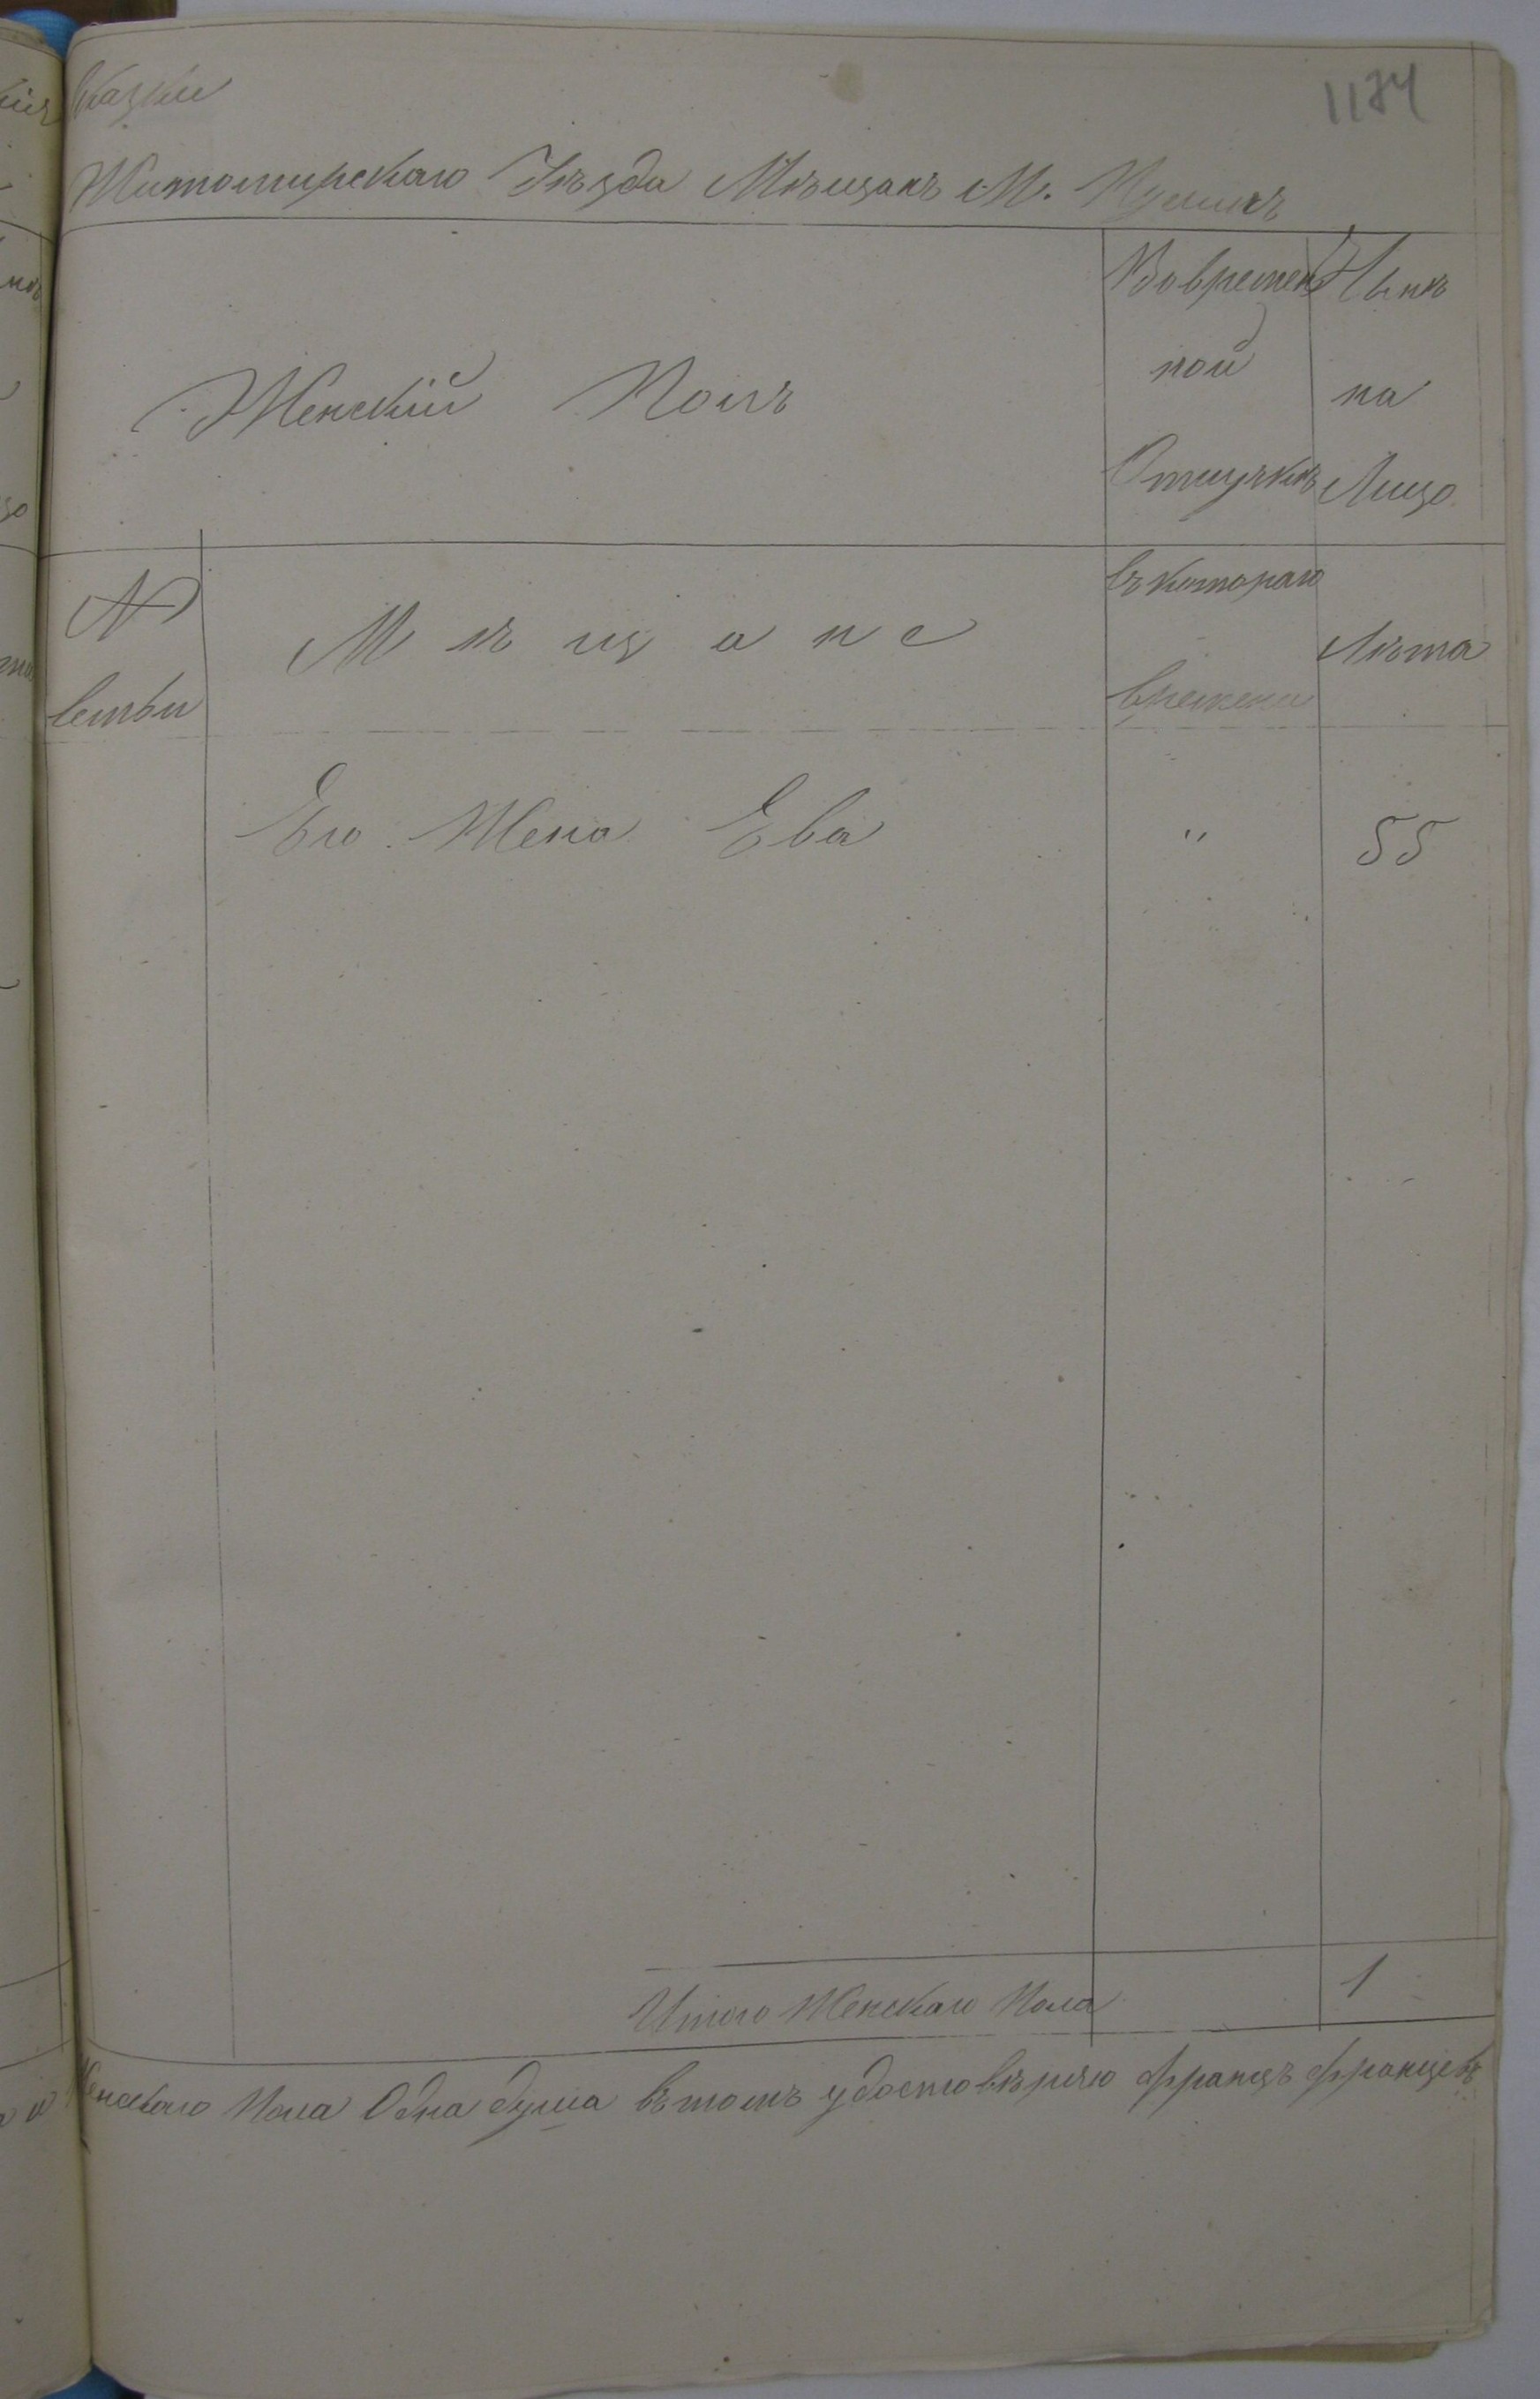 1174
сказки
Житомирскаго Уѣзда Мѣщанъ М. Пулинъ
Женскій Полъ
Во времен
ной
Отлучкѣ
Нынѣ
на
Лицо
№
семьи
Мѣщане
съ котораго
времени
Лѣта
Его Жена Ева
"
55
Итого Женскаго Пола
1
Женскаго Пола Одна душа въ томъ удостовѣряю Францъ Францевъ